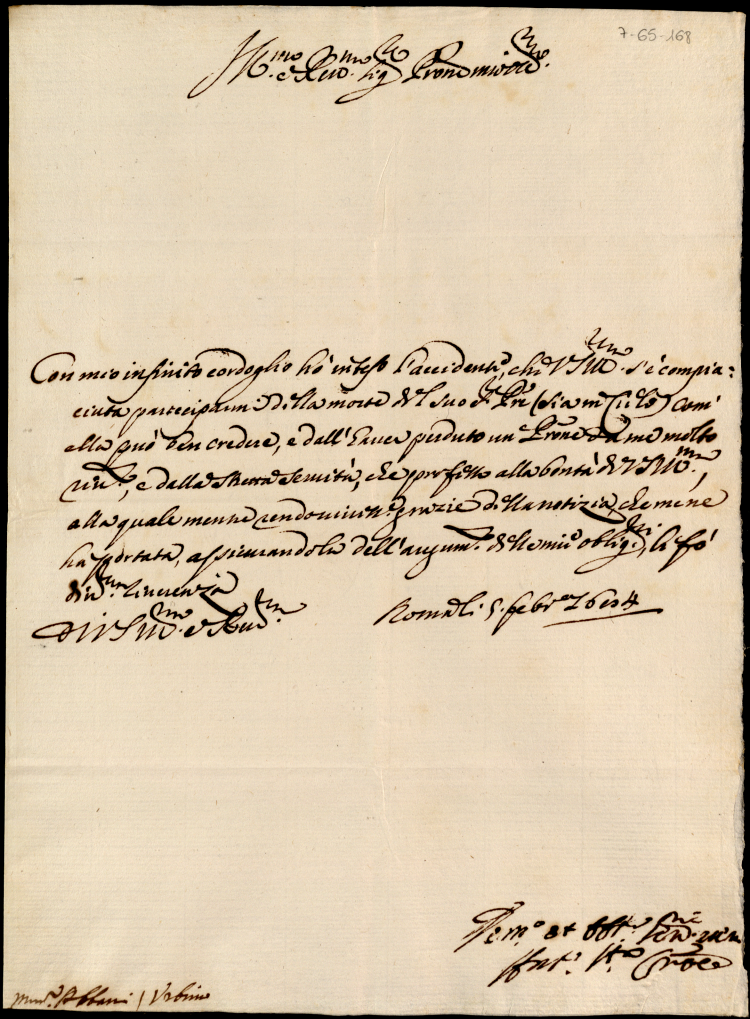 7-65-168
Ill.mo e Rev.mo Sig.re Prone mio Col.mo
Con mio infinito cordoglio hò inteso l'accidente, che VS Ill.ma s'è compia=
ciuta participarmi della morte del suo S.r Pre (sia in Cielo) com'
ella può ben credere, e dall'haver perduto un Prone da me molto
riv.to, e dalla stessa servitù, che professo alla bontà di VS Ill.ma,
alla quale mentre rendo vivis.me grazie della notizia, che me ne
ha portata, assicurandola dell'augum.to delle mie oblig.ni, li fò
div.ma riverenza
Di VS Ill.ma e Rev.ma
Roma li 5 febr.o 1684
Dev.mo et obbl.mo Ser.re
Mons.r Albani / Urbino